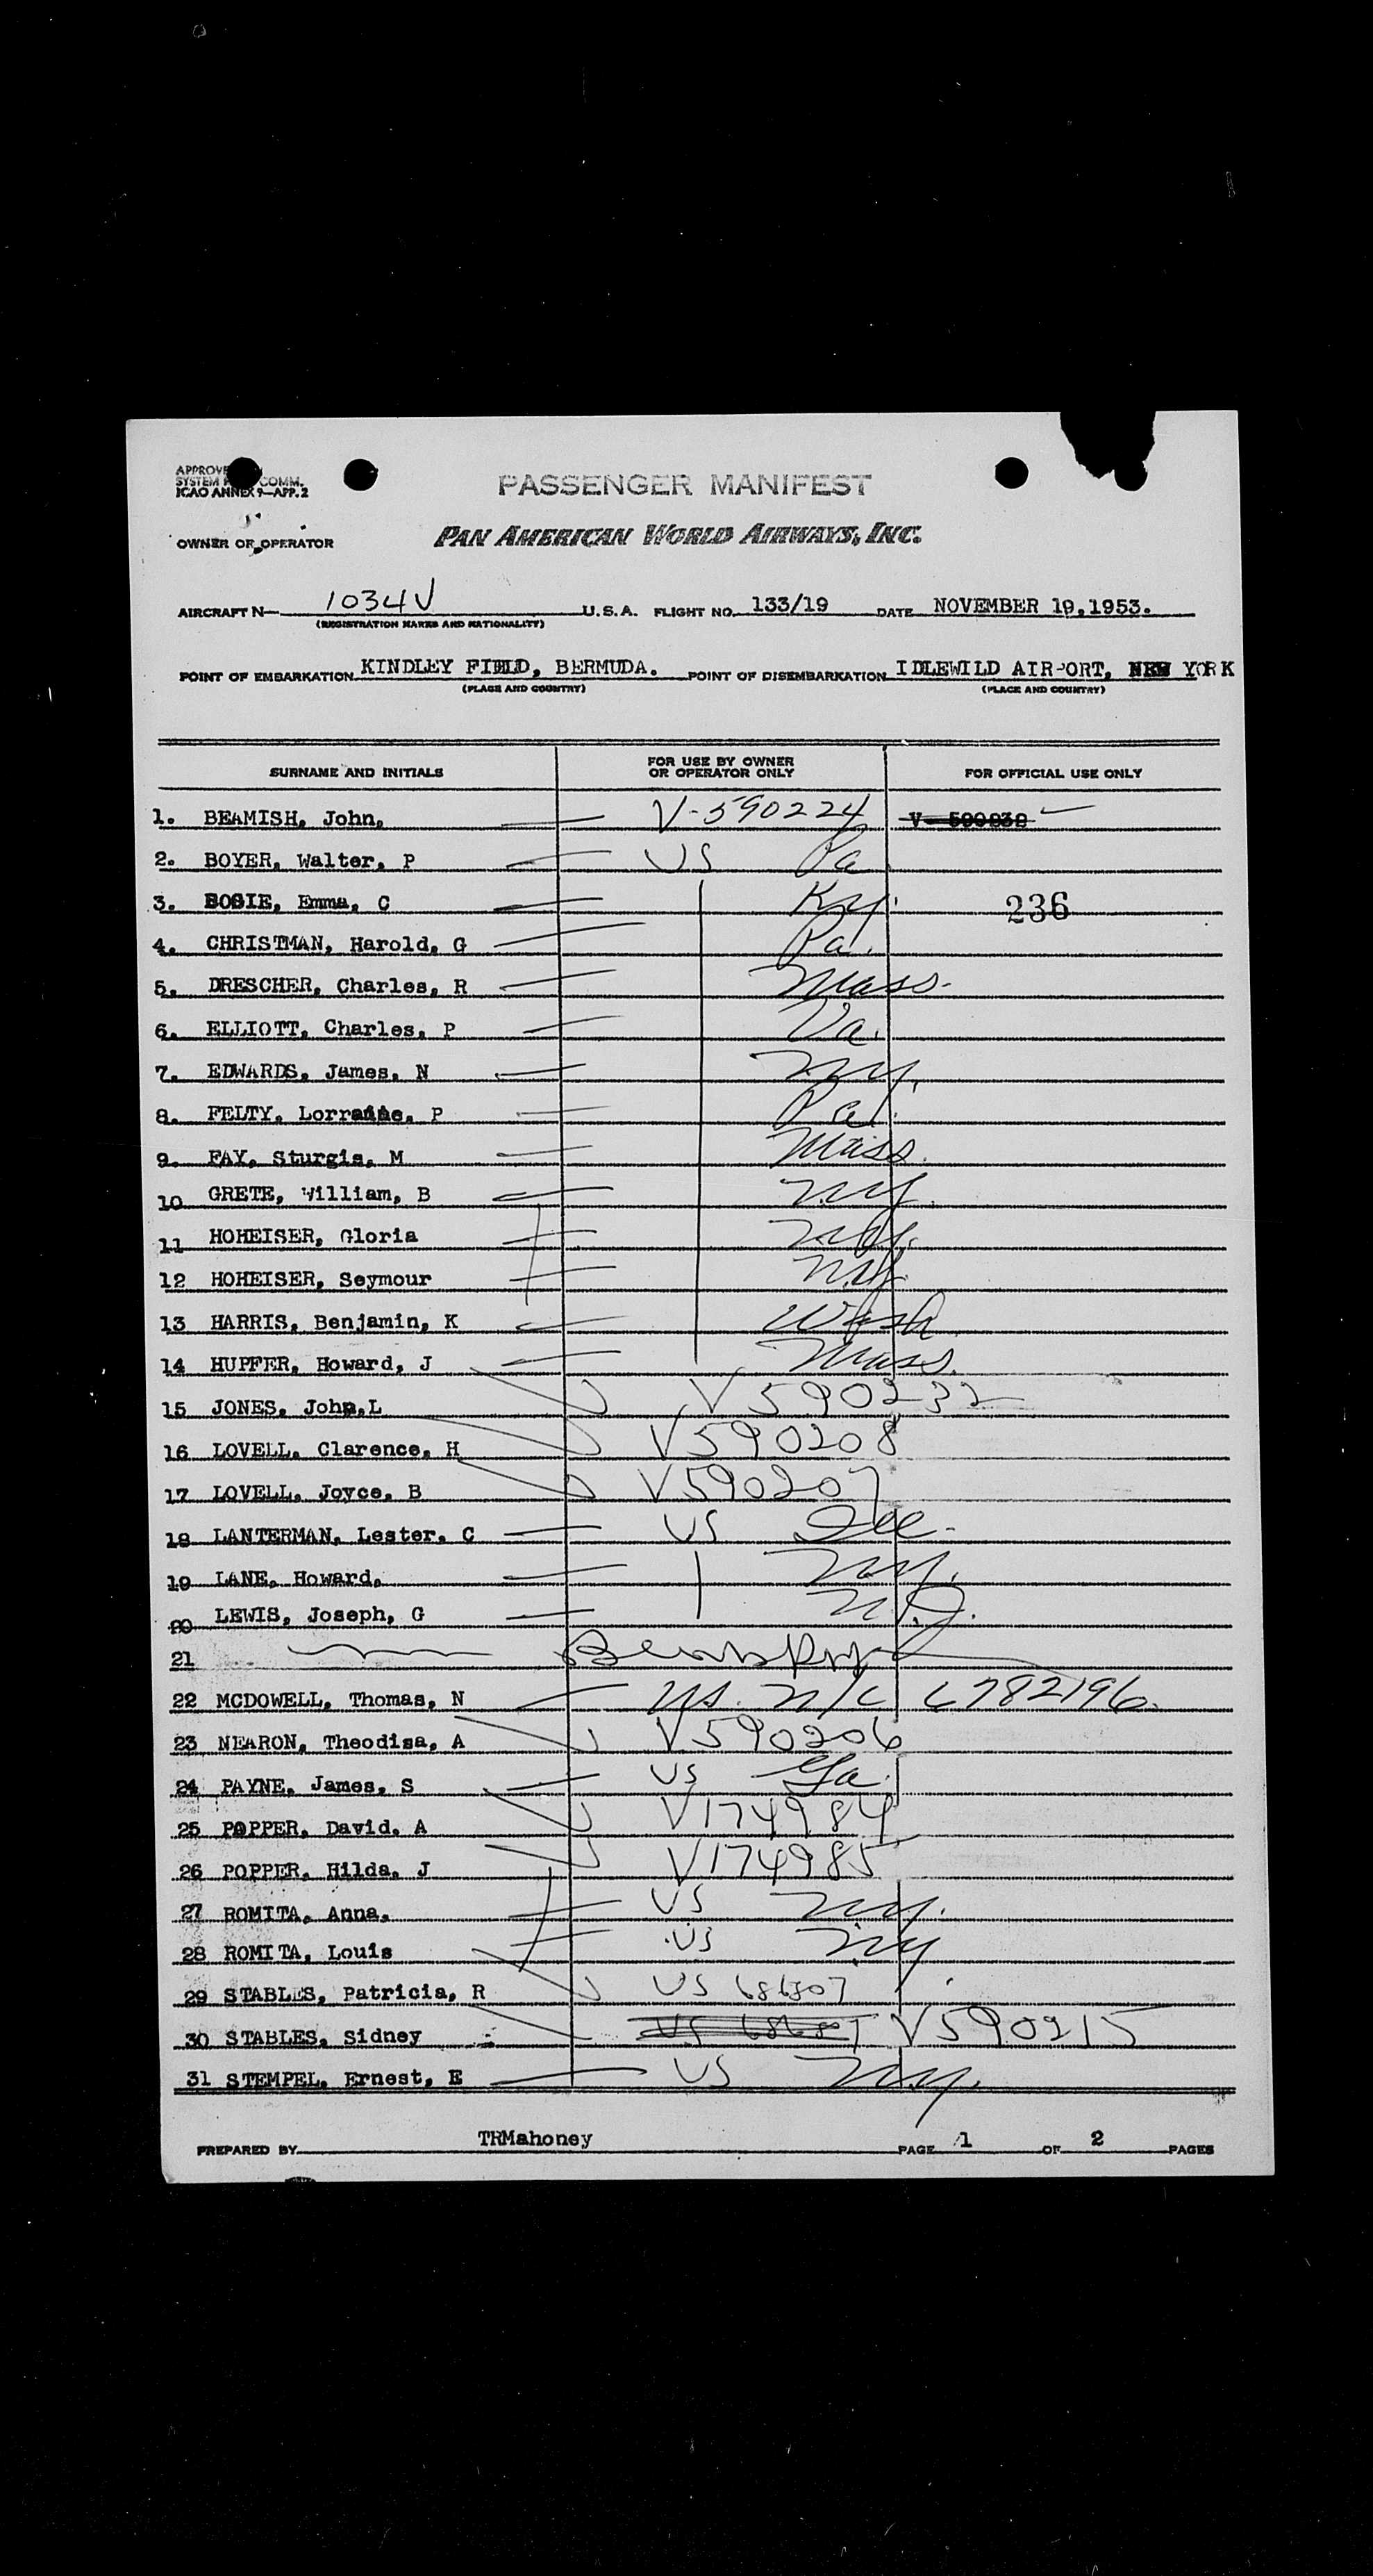 APPROVE
SYSTEM COMM.
ICAO ANNEX 9—APP. 2
PASSENGER MANIFEST
OWNER OR OPERATOR PAN AMERICAN WORLD AIRWAYS, INC.
AIRCRAFT N— 1034V U.S.A. FLIGHT NO. 133/19 DATE NOVEMBER 19,1953.
(REGISTRATION MARKS AND NATIONALITY)
POINT OF EMBARKATION KINDLEY FIELD, BERMUDA. POINT OF DISEMBARKATION IDLEWILD AIR-ORT, NEW YORK
(PLACE AND COUNTRY) (PLACE AND COUNTRY)
SURNAME AND INITIALS FOR USE BY OWNER OR OPERATOR ONLY FOR OFFICIAL USE ONLY
1. BEAMISH, John, V-590224
2. BOYER, Walter, P US Pa
3. BOSIE, Emma, C Ky. 236
4. CHRISTMAN, Harold, G Pa.
5. DRESCHER, Charles, R Mass.
6. ELLIOTT, Charles, P Va.
7. EDWARDS, James, N NY.
8. FELTY, Lorraine, P Pa.
9. FAY, Sturgis, M Mass.
10 GRETE, William, B NY.
11 HOHEISER, Gloria NY.
12 HOHEISER, Seymour NY.
13 HARRIS, Benjamin, K Wash
14 HUPFER, Howard, J Mass.
15 JONES, John,L V590232
16 LOVELL, Clarence, H V590208
17 LOVELL, Joyce, B V590207
18 LANTERMAN, Lester, C US Ill.
19 LANE, Howard, NY.
20 LEWIS, Joseph, G N.J.
21
22 MCDOWELL, Thomas, N US. N/C C782196
23 NEARON, Theodisa, A V590206
24 PAYNE, James, S US Ga.
25 POPPER, David, A V174984
26 POPPER, Hilda, J V174985
27 ROMITA, Anna, US NY.
28 ROMITA, Louis US NY
29 STABLES, Patricia, R US 686807
30 STABLES, Sidney V590215
31 STEMPEL, Ernest, E US NY.
PREPARED BY TRMahoney PAGE 1 OF 2 PAGES